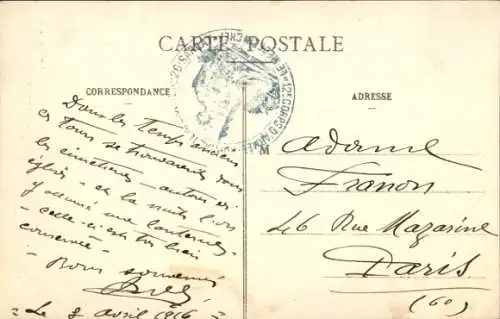 CARTE POSTALE
CORRESPONDANCE
ADRESSE
12e CORPS D'ARMÉE
Dans les temps anciens
ces tours se trouvaient dans
les cimetières - autour des
églises - et la nuit l'on
y allumait une lanterne -
- celle-ci est très bien
conservée -
- Bons souvenirs
= Le 2 avril 1916 =
Madame
Franon
46 Rue Mazarine
Paris
(6e)